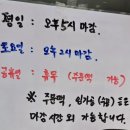 평일 : 오후 5시 마감.
토요일 : 오후 2시 마감.
공휴일 : 휴무 (주문액 가능)
※ 주문액, 인가증 (수령) 등은
마감시간 외 가능합니다.